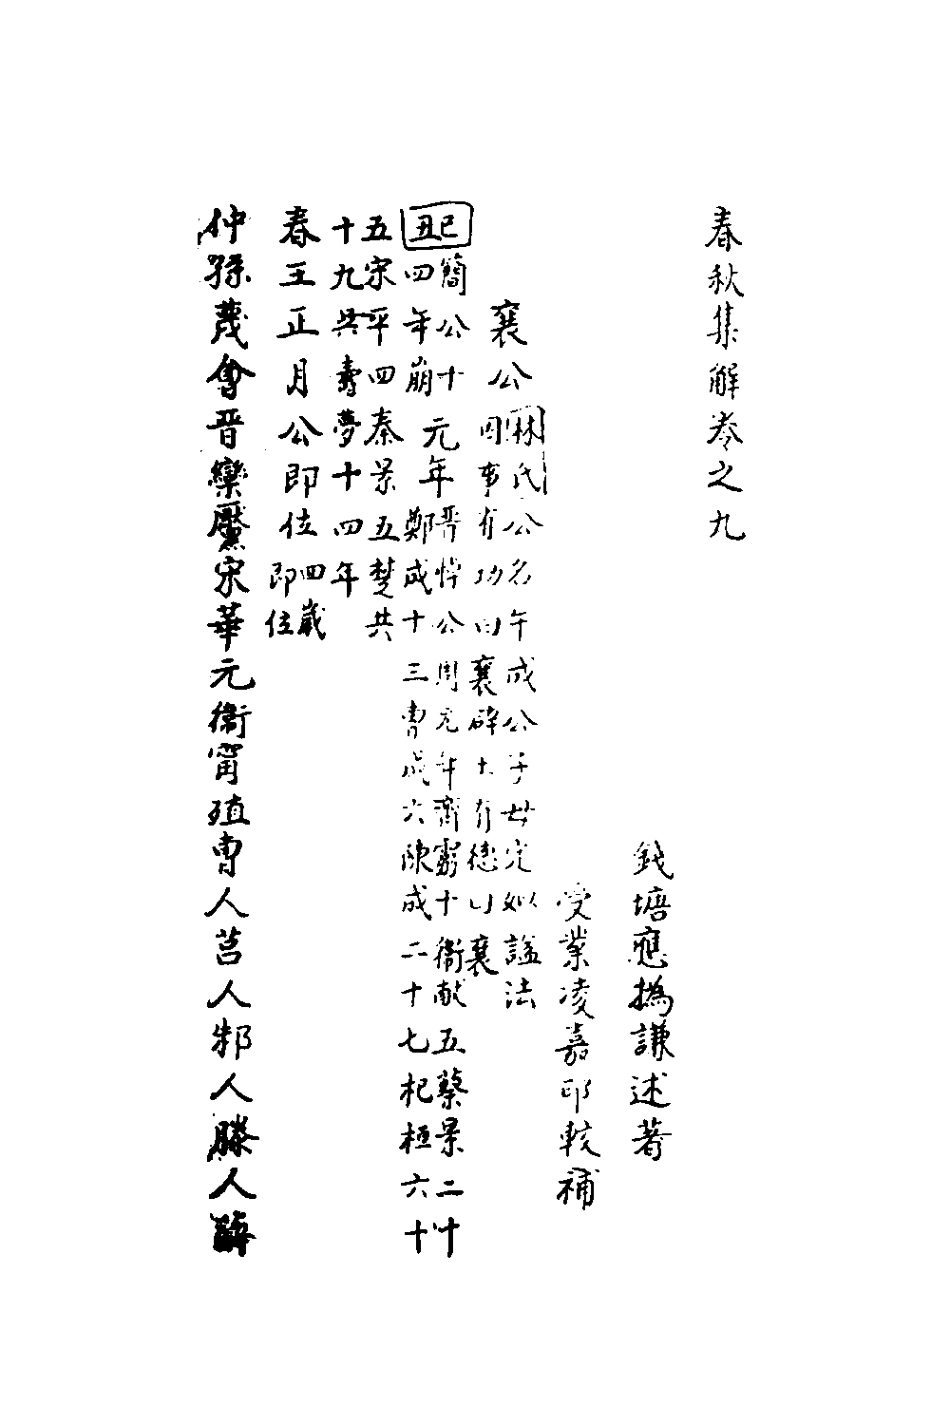 春秋集解卷之九
錢塘應撝謙述著
受業凌嘉邵較補
襄公
林氏公名午成公子母定姒謚法
因事有功曰襄辟土有德曰襄
己丑
簡公十
四年崩
元年
晉悼公周元年齊靈十衞献五蔡景二十
鄭成十三曹成六陳成二十七杞桓六十
五宋平四秦景五楚共
十九共壽夢十四年
春王正月公即位
四歲
即位
仲孫蔑會晉欒黶宋華元衞甯殖曹人莒人邾人滕人薛